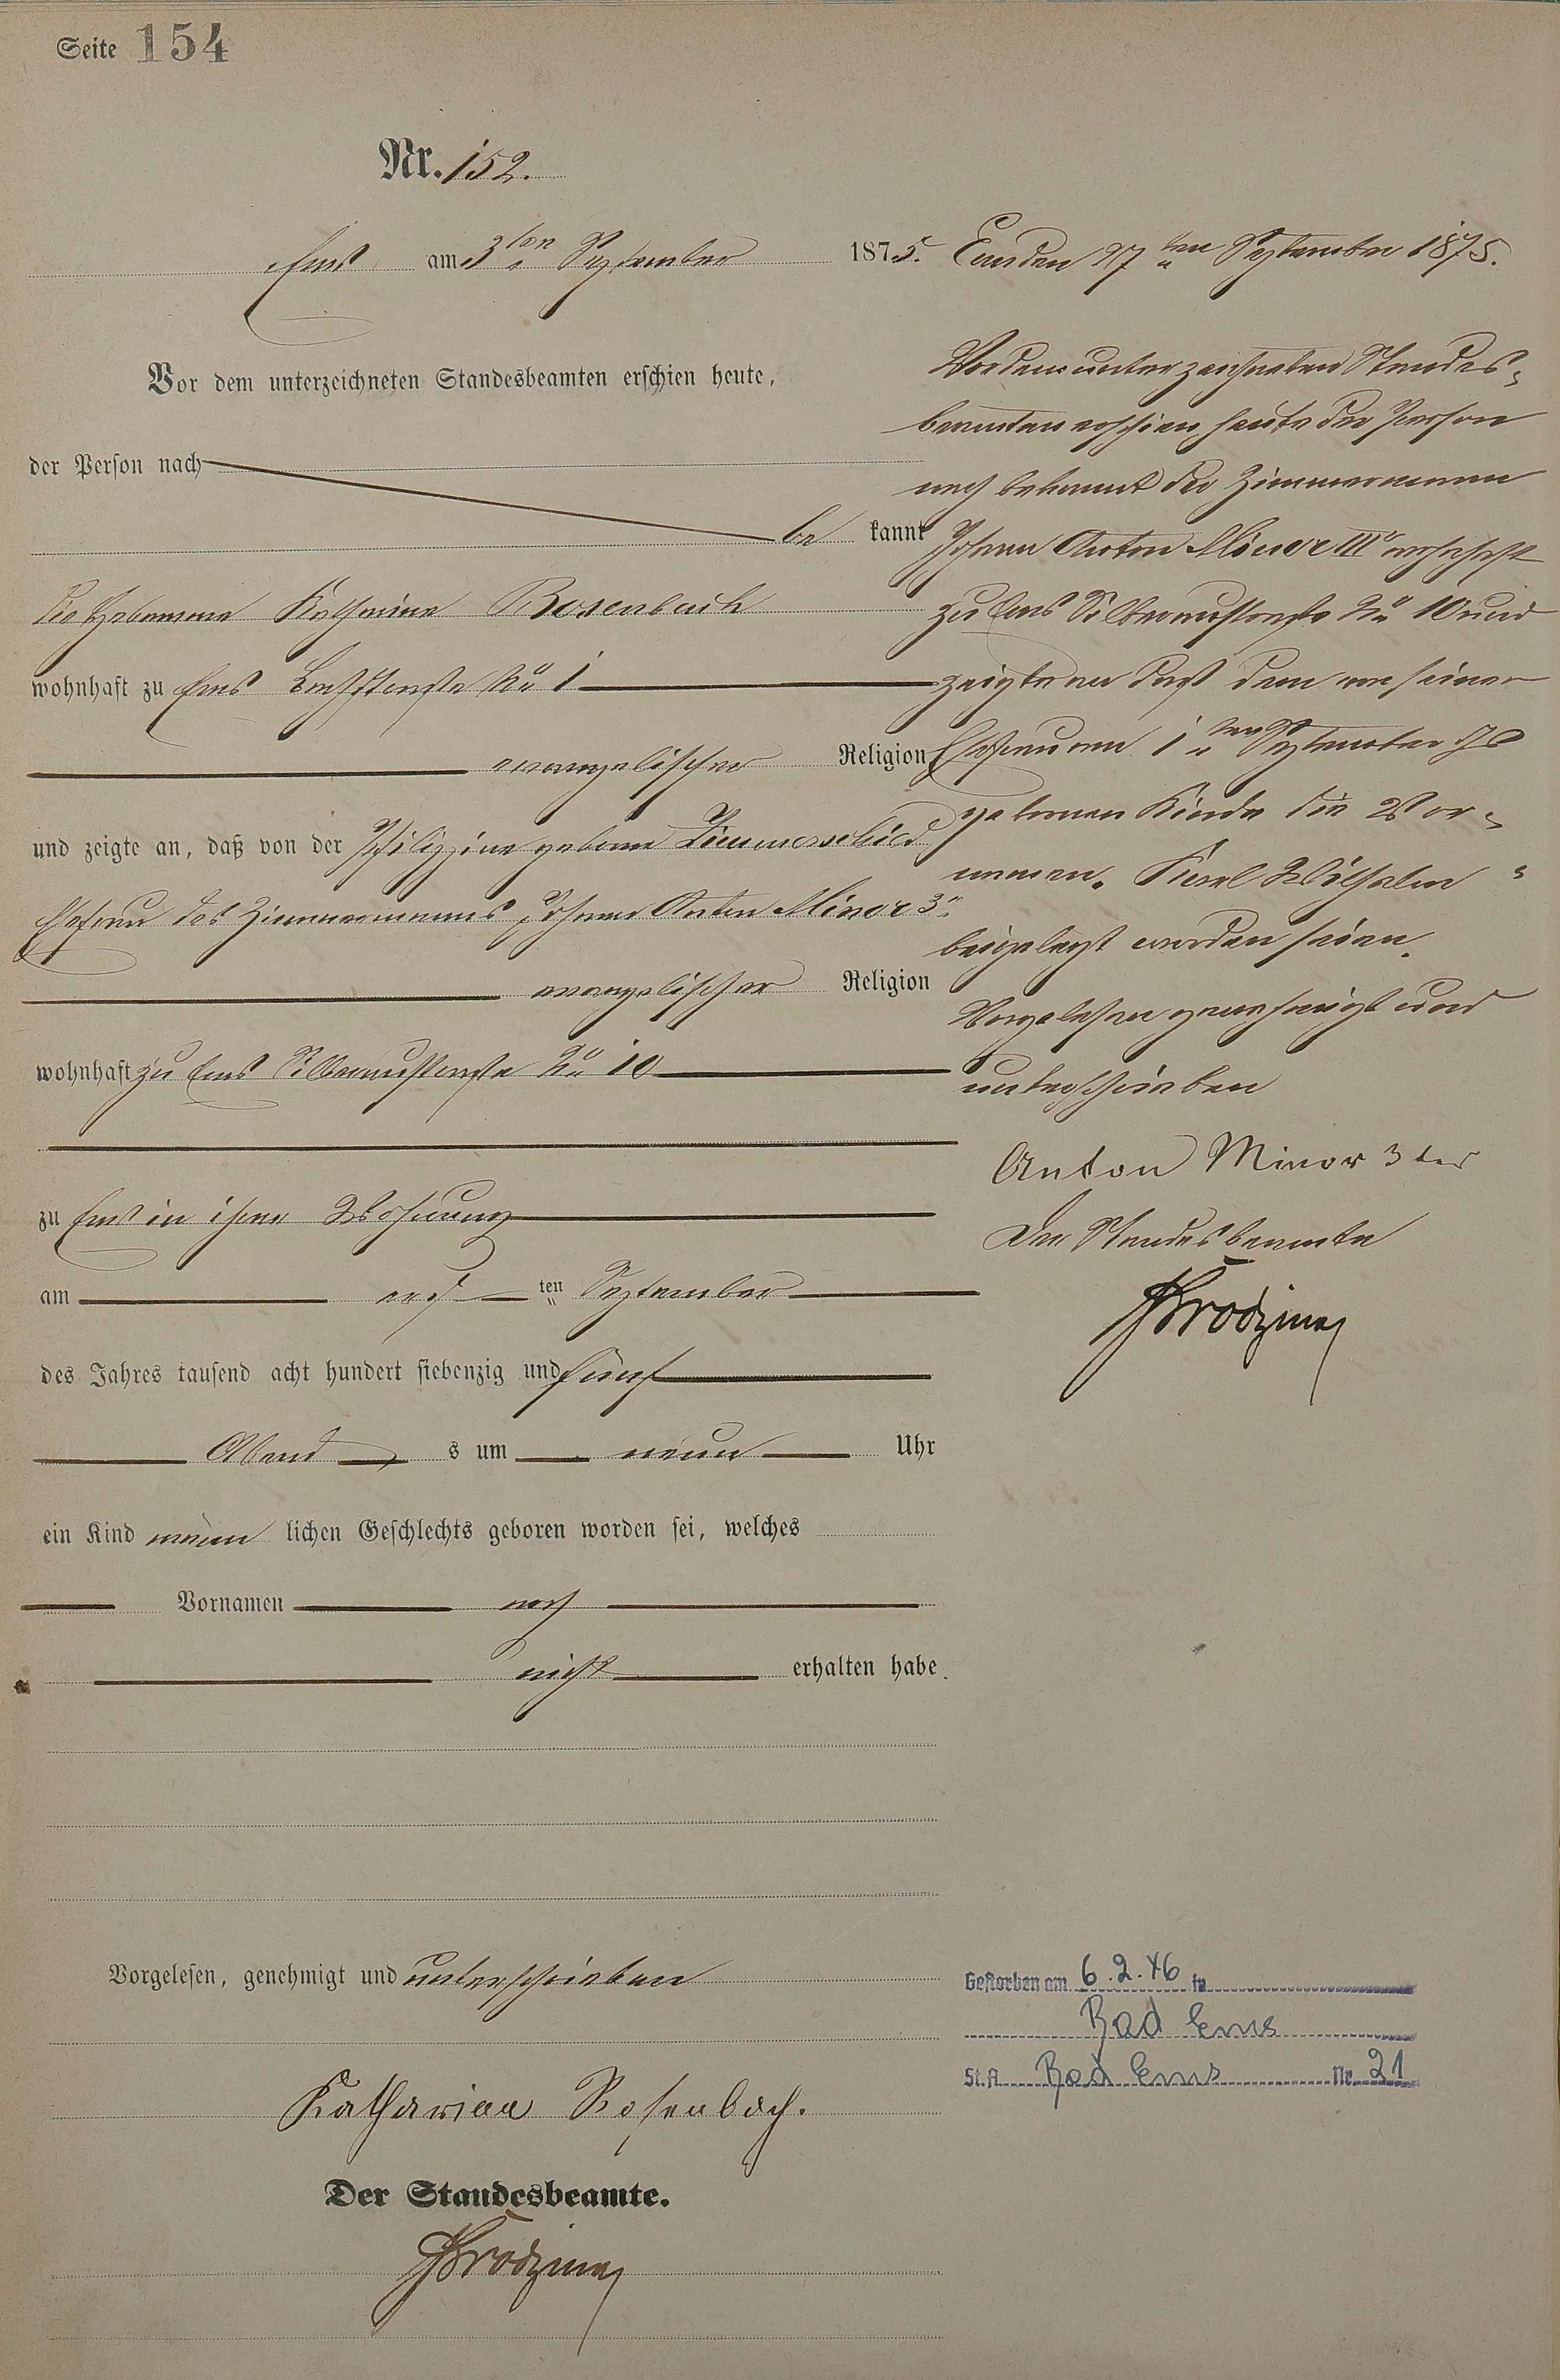 Seite 154
Nr. 152.
Ems am 3ten September 1875.
Vor dem unterzeichneten Standesbeamten erschien heute,
der Person nach
be kannt
die Hebamme Katharina Rosenbach
wohnhaft zu Ems No 1
evangelischer Religion
und zeigte an, daß von der Philippine geborne Zimmerschied
Ehefrau des Zimmermanns Johann Anton Minor 3r
evangelischer Religion
wohnhaft zu Ems Silberaustraße No 10
zu Ems in ihrer Wohnung
am ers ten September
des Jahres tausend acht hundert siebenzig und fünf
Abend s um neun Uhr
ein Kind männ lichen Geschlechts geboren worden sei, welches
Vornamen noch
nicht erhalten habe.
Vorgelesen, genehmigt und unterschrieben
Katharina Rosenbach.
Der Standesbeamte.
Ems den 27ten September 1875.
Vor dem unterzeichneten Standes-
beamten erschien heute der Person
nach bekannt der Zimmermann
Johann Anton Minor IIIr wohnhaft
zu Ems Silberaustraße No 10 und
zeigte an daß dem von seiner
Ehefrau am 1ten September
gebornen Kinde die Vor-
namen. Karl Wilhelm
beigelegt worden seien.
Vorgelesen genehmigt und
unterschrieben
Anton Minor 3ter
Der Standesbeamte
Gestorben am 6.2.46 in
Bad Ems
St.A. Bad Ems Nr. 21